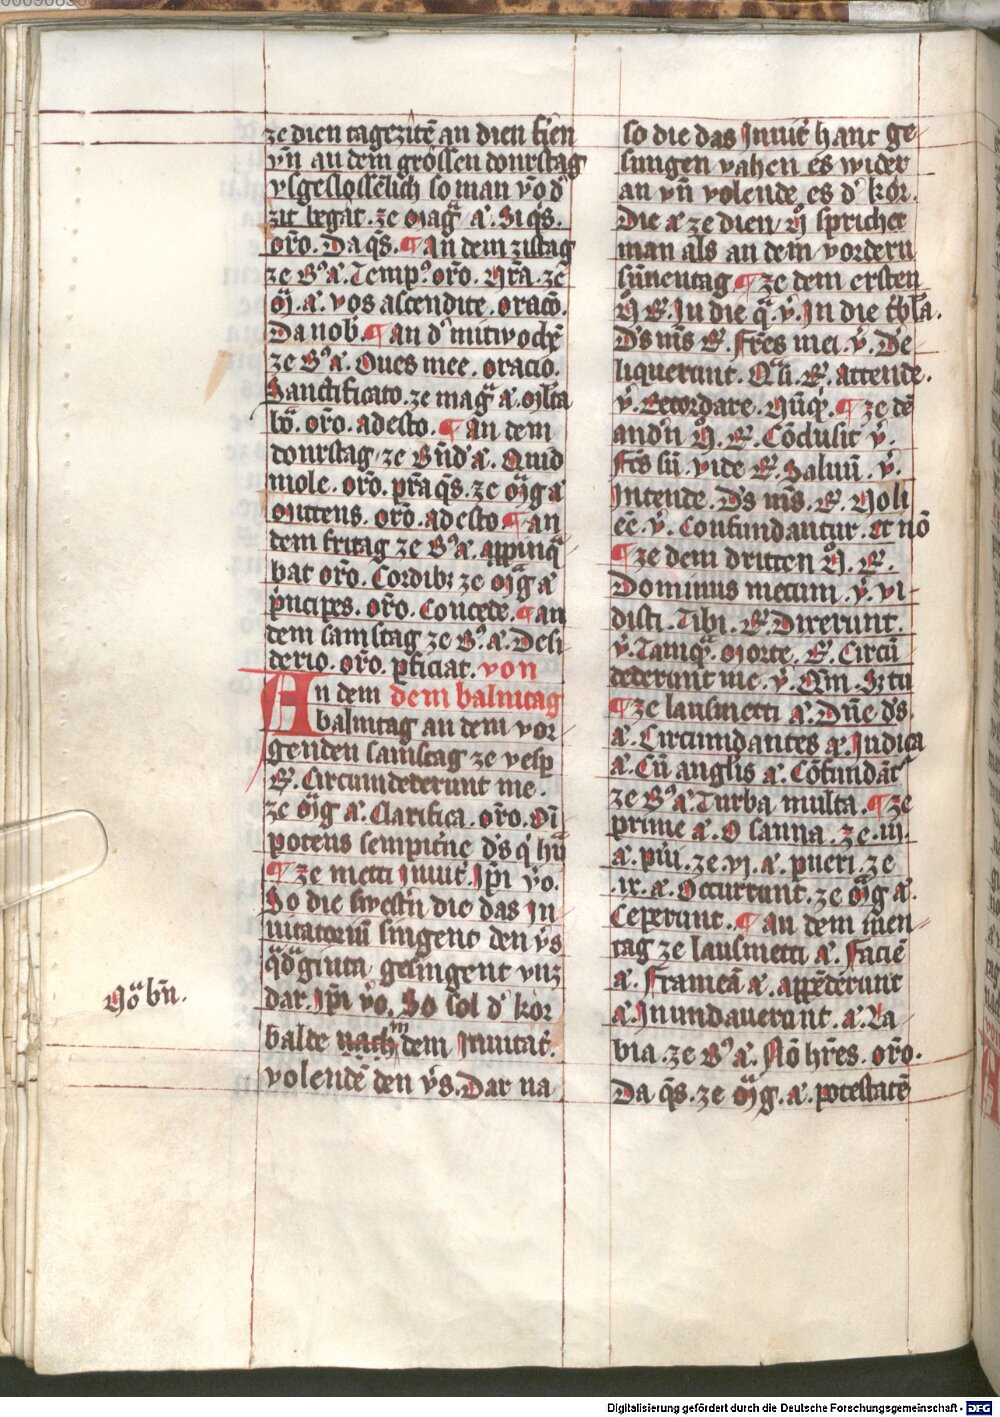 ze dien tagezitē an dien firēn
vn̄ an dem grossen donrstag
vsgeslossēlich so man vo d'
zit begat. ze mag̅ a̅. Si q̅s.
oro̅. Da q̅s. ¶ An dem zistag
ze B's a̅. Temp's. oro̅. Nr̄a. ze
m̅. a̅. vos ascendite. oracō.
Da nob̄. ¶ an d' mitwochē
ze B's a̅. Oues mee. oracio.
Sanctificato. ze mag̅ a̅. Mlta
bo̅. oro̅. adesto. ¶ an dem
donrstag ze Bn̄d' a̅. Quid
mole. oro̅. pr̄a q̅s. ze m̅g a̅
mittens. oro̅. adesto ¶ an
dem fritag ze B's a̅. appinq̅
bat oro̅. Cordibꝫ ze m̅g a̅
p̄ncipes. oro̅. Concede. ¶ an
dem samstag ze B's. a̅. Desi
derio. oro̅. p̄ficiat. von
An dem dem balmtag
balmtag an dem vor
genden samstag ze vesp̄
R̄. Circumdederunt me.
ze m̅g a̅. Clarifica. oro̅. Oī
potens sempit'ne d's q' hū
¶ ze metti Inuit̄. Ip̄i vo.
So die swest'n die das In
uitatoriū singent den v̄s
q̅d̅ginta gesingent vnz
dar. Ip̄i vo. So sol d' kor
balde nach dem Inuitat̄.
volendē den v̄s. Dar na
No̅ bn̄.
so die das Inuit̄ hant ge
sungen vahen es wider
an vn̄ volende es d' kor.
Die a̅ ze dien N̄ sprichet
man als an dem vordern
sunnentag ¶ ze dem ersten
N̄ R̄. In die q̅. v̄. In die t'bl'a.
D's m̄s R̄. Fr̄es mei. v̄. De
liquerunt. Q̅li. R̄. Attende.
v̄. Recordare. Nūq̅. ¶ ze dē
andn̄ N̄. R̄. Cōclusit v̄.
F̄cs sū. vide R̄. Saluū. v̄.
Intende. D's m̄s. R̄. Noli
eē. v̄. Confundantur. et nō
¶ ze dem dritten N̄. R̄.
Dominus mecum. v̄. vi
disti. Tibi. R̄. Dixerunt.
v̄. Tamq̅. Morte. R̄. Circū
dederunt me. v̄. Qm̄. Sz tu
¶ ze lausmetti a̅. Dn̄e d's
a̅. Circumdantes a̅. Iudica
a̅. Cū anglis a̅. Cōfundāt'
ze B's a̅. Turba multa. ¶ ze
prime a̅. Osanna. ze .iii.
a̅. p̄iu. ze .vi. a̅. pueri. ze
.ix. a̅. Occurrunt. ze m̅g a̅.
Ceperunt. ¶ an dem men
tag ze lausmetti a̅. Faciē
a̅. Frameā a̅. appēderunt
a̅. Inundauerunt. a̅. La
bia. ze B's a̅. Nō hr̄es. oro̅.
Da q̅s. ze m̅g. a̅. potestatē
Digitalisierung gefördert durch die Deutsche Forschungsgemeinschaft - DFG